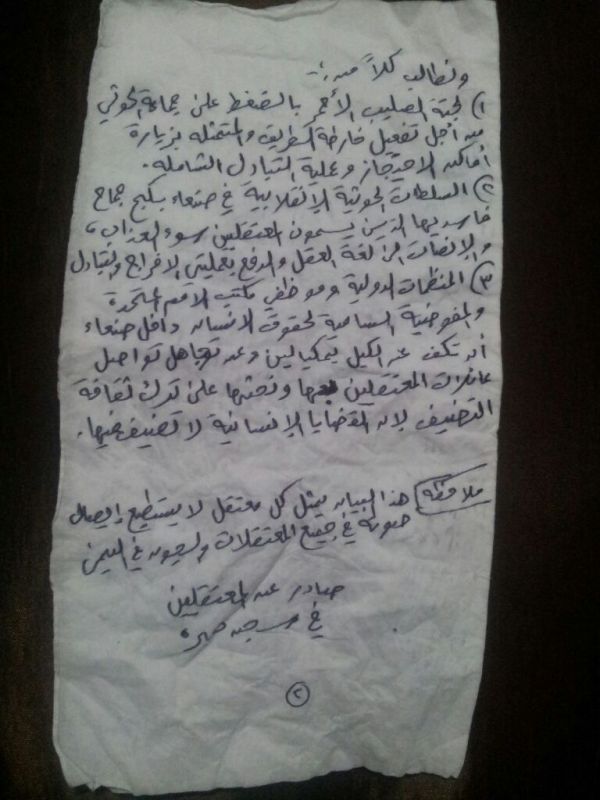 ونطالب كلاً من :-
١) لجنة الصليب الأحمر بالضغط على جماعة الحوثي
من أجل تفعيل خارطة الطريق والمتمثله بزيارة
أماكن الاحتجاز وعملية التبادل الشامله.
٢) السلطات الحوثية الإنقلابية في صنعاء بكبح جماح
فاسديها الذين يسمون المعتقلين سوء العذاب،
والإنصات الى لغة العقل والدفع بعمليتي الافراج والتبادل
٣) المنظمات الدولية وموظفي مكتب الأمم المتحدة
والمفوضية السامية لحقوق الانسان داخل صنعاء
أن تكف عن الكيل بمكيالين وعن تجاهل تواصل
عائلات المعتقلين بها ونحثها على ترك ثقافة
التصنيف لان القضايا الإنسانية لا تصنيف فيها.
ملاحظة هذا البيان يمثل كل معتقل لا يستطيع إيصال
صوته في جميع المعتقلات والسجون في اليمن
صادر عن المعتقلين
في سجن هبرة
٢